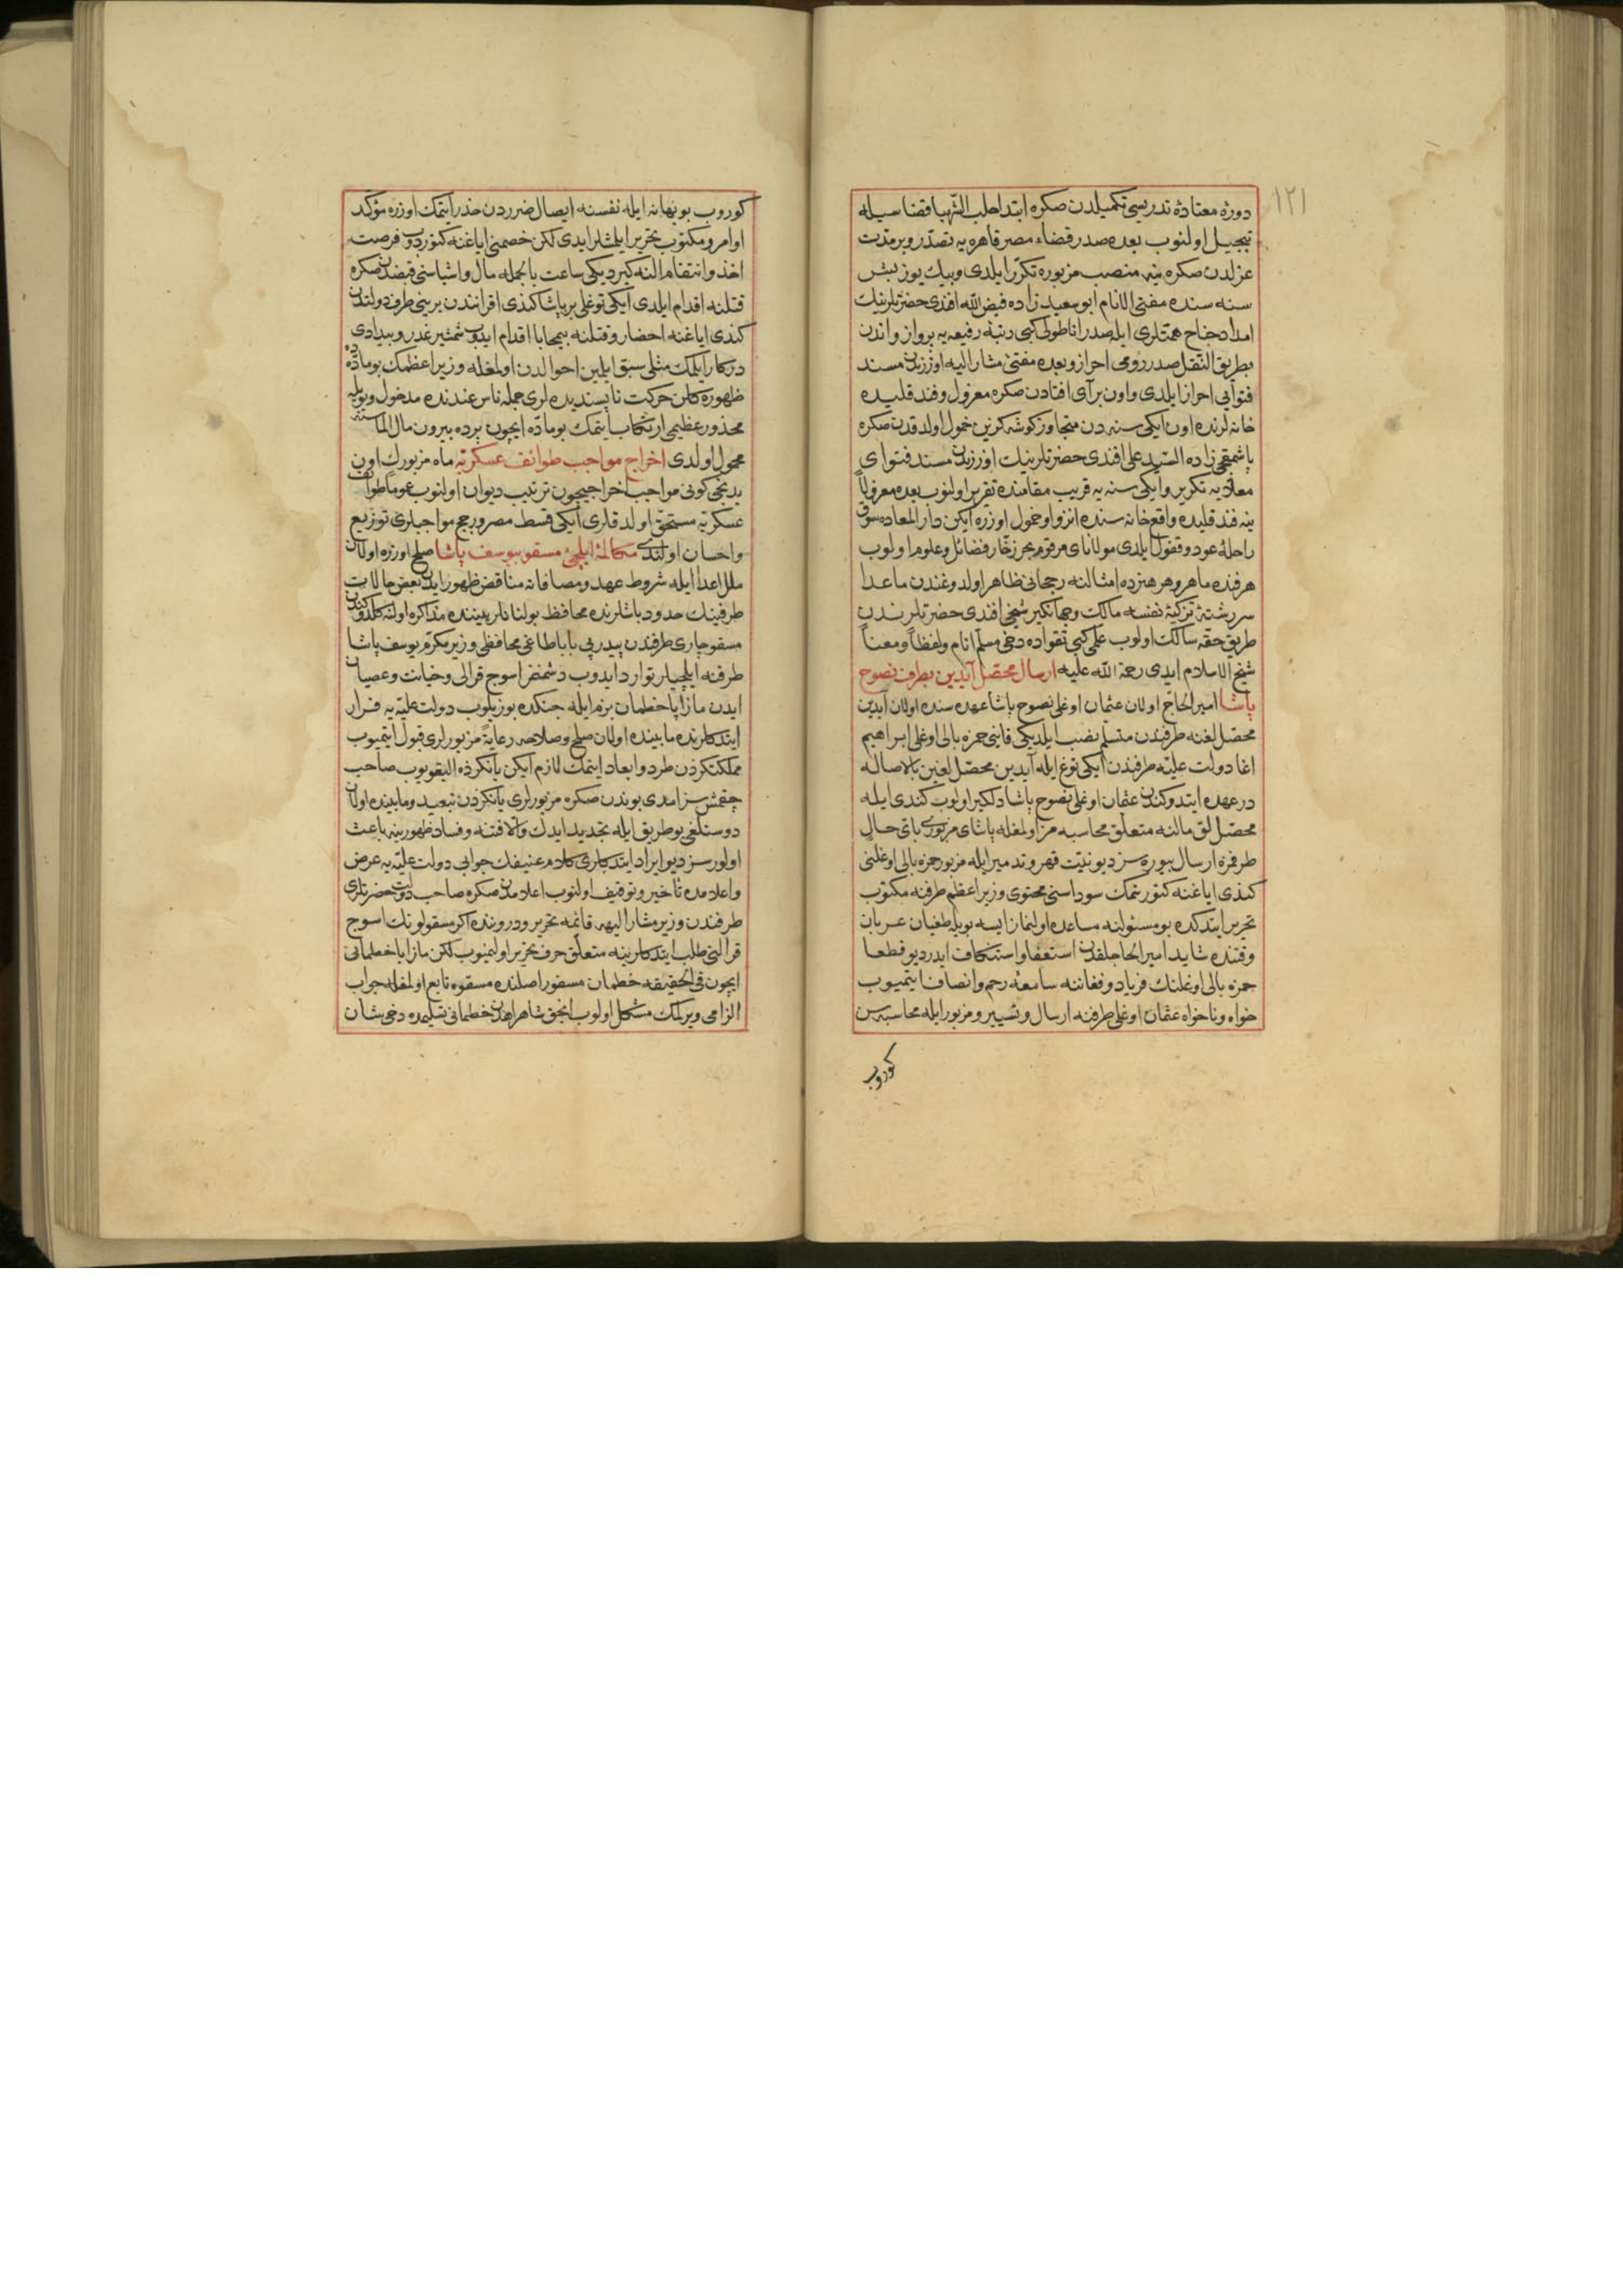 ١٢١
دورهٔ معتادهٔ تدریسی تکمیلدن صکره ابتدا حلب الشهبا قضاسیله
تبجیل اولنوب بعده صدر قضاء مصر قاهره یه تصدّر و بر مدت
عزلدن صکره ینه منصب مزبوره تکرّر ایلدی و بیك یوز بش
سنه سنده مفتی الانام ابو سعید زاده فیض الله افندی حضرتلرینك
امداد جناح همتلری ایله صدر اناطولی کبی رتبهٔ رفیعه یه پرواز و اندن
بطریق التنقل صدر رومی احراز و بعده مفتئ مشار الیه اوزرندن مسند
فتوایی احراز ایلدی و اون بر آی افتادن صکره معزول و فندقلیده
خانه لرنده اون ایکی سنه دن متجاوز کوشه کزین خمول اولدقدن صکره
پاشمقجی زاده السّید علی افندی حضرتلرینك اوزرندن مسند فتوای
معلّایه تکریر و ایکی سنه یه قریب مقامنده تقریر اولنوب بعده معزولاً
ینه فندقلیده واقع خانه سنده انزوا و خمول اوزره ایکن دار المعاده سوق
راحلهٔ عود و قفول ایلدی مولانای مرقوم بحر زخّار فضائل و علوم اولوب
هر فنده ماهر و هر هنرده امثالنه رجحانی ظاهر اولدوغندن ماعدا
سررشتهٔ تزکیهٔ نفسه مالك و جهانکیر شیخی افندی حضرتلرندن
طریق حقه سالك اولوب علمی کبی تقواده دخی مسلّم انام و لفظاً و معناً
شیخ الاسلام ایدی رحمة الله علیه ارسال محصّل آیدین بطرف نصوح
پاشا امیر الحاج اولان عثمان اوغلی نصوح پاشا عهده سنده اولان آیدین
محصّللغنه طرفندن متسلّم نصب ایلدیکی قاینی حمزه بالی اوغلی ابراهیم
اغا دولت علیّه طرفندن ایکی توغ ایله آیدین محصّللغین بالاصاله
در عهده ایتدوکندن عثمان اوغلی نصوح پاشا دلکیر اولوب کندی ایله
محصّللق مالنه متعلّق محاسبه مز اولمغله پاشای مزبوری بای حال
طرفمزه ارسال بیوره سز دیو نیّت قهر و تدمیر ایله مزبور حمزه بالی اوغلنی
کندی ایاغنه کتورتمك سوداسنی محتوی وزیر اعظم طرفنه مکتوب
تحریر ایتدکده بو مسئولنه مساعده اولنماز ایسه بویله طغیان عربان
وقتنده شاید امیر الحاجلقدن استعفا و استنکاف ایدر دیو قطعا
حمزه بالی اوغلنك فریاد و فغاننه سامعهٔ رحم و انصاف ایتمیوب
خواه و ناخواه عثمان اوغلی طرفنه ارسال و تسییر و مزبور ایله محاسبه سن
کوروب
کوروب بو بهانه ایله نفسنه ایصال ضرردن حذر ایتمك اوزره مؤکد
اوامر و مکتوب تحریر ایلمشلر ایدی لکن خصمنی ایاغنه کتوردوب فرصت
اخذ و انتقام النه کیردیکی ساعت بالجمله مال و اشیاسنی قبضدن صکره
قتلنه اقدام ایلدی ایکی توغلی بر پاشا کندی اقرانندن برینی طرف دولتدن
کندی ایاغنه احضار و قتلنه بیمحابا اقدام ایدوب شمشیر غدر و بیدادی
درکار ایلمك مثلی سبق ایلین احوالدن اولمغله وزیر اعظمك بو مادّه ده
ظهوره کلن حرکت ناپسندیده لری جمله ناس عندنده مدخول و بویله
محذور عظیمی ارتکاب ایتمك بو مادّه ایچون پرده بیرون مال الماسنه
محمول اولدی اخراج مواجب طوائف عسکریّه ماه مزبورك اون
یدنجی کونی مواجب اخراجیچون ترتیب دیوان اولنوب عموماً طوائف
عسکریّه مستحق اولدقلری ایکی قسط مصر و رجج مواجبلری توزیع
و احسان اولندی مکالمهٔ ایلچئ مسقو بیوسف پاشا صلح اوزره اولان
ملل اعدا ایله شروط عهد و مصافاته مناقض ظهور ایدن بعض حالات
طرفینك حدود باشلرنده محافظ بولنانلر بیننده مذاکره اولنه کلدوکندن
مسقو چاری طرفندن پیدرپی باباطاغی محافظی وزیر مکرّم یوسف پاشا
طرفنه ایلچیلر توارد ایدوب دشمنمز اسوج قرالی و خیانت و عصیان
ایدن مازاپا خطمان بزم ایله جنکده بوزیلوب دولت علیّه یه فرار
ایتدکلرنده مابینده اولان صلح و صلاحه رعایةً مزبورلری قبول ایتمیوب
مملکتکزدن طرد و ابعاد ایتمك لازم ایکن یانکزده الیقویوب صاحب
چقمش سز امدی بوندن صکره مزبورلری یانکزدن تبعید و مابینده اولان
دوستلغی بو طریق ایله تجدید ایدك والّا فتنه و فساد ظهورینه باعث
اولورسز دیو ایراد ایتدکلری کلام عنیفك جوابی دولت علیّه یه عرض
و اعلامده تأخیر و توقیف اولنوب اعلامدن صکره صاحب دولت حضرتلری
طرفندن وزیر مشار الیهه قائمه تحریر و درونده اکر مسقولونك اسوج
قرالنی طلب ایتدکلرینه متعلّق حرف تحریر اولنمیوب لکن مازاپا خطمانی
ایچون فی الحقیقه خطمان مسفور اصلنده مسقوه تابع اولمغله جواب
الزامی ویرلمك مشکل اولوب انجق شاهراهدن خطمانی تسلیمده دخی شان